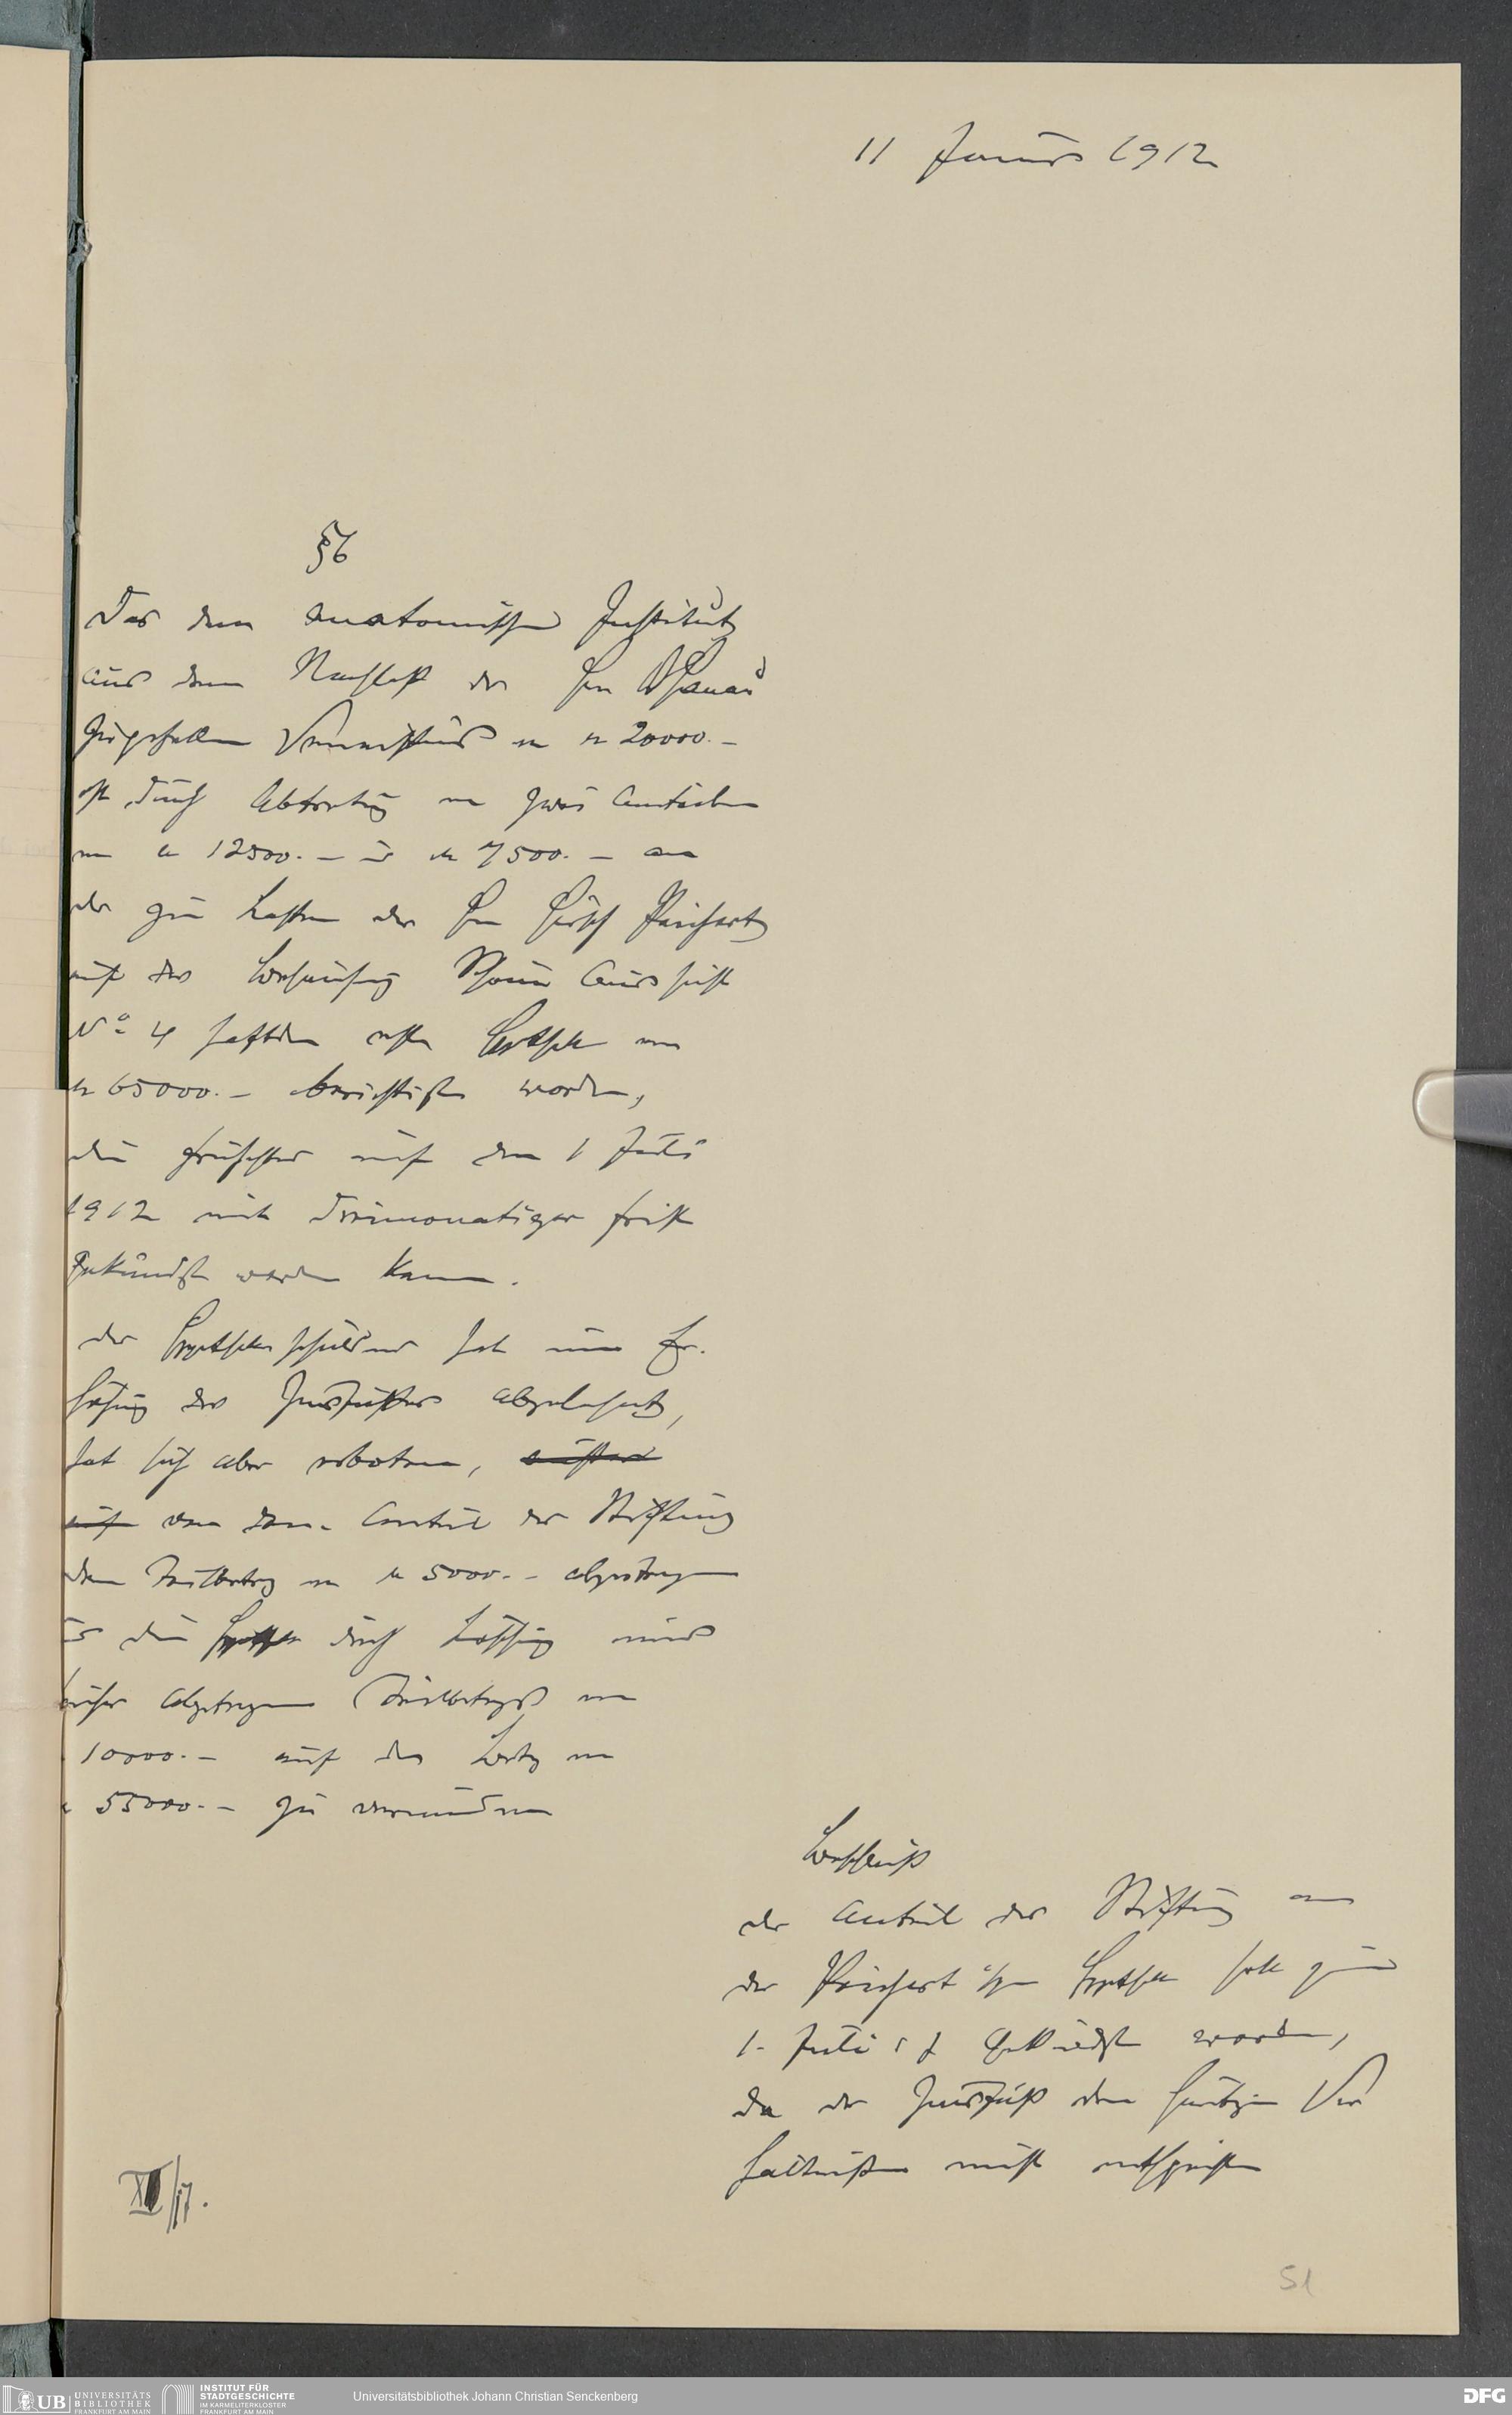 11 Januar 1912
§ 6
Das dem anatomischen Institut
aus dem Nachlaß des Hrn
zugefallene Vermächtnis von M 20000.-
ist durch Abtretung von zwei Anteilen
von M 12500.- u M 7500.- an
der zu Lasten des Hrn Hirsch
auf der Liegenschaft
No 4 haftenden ersten Hypothek von
M 65000.- berichtigt worden,
die frühestens auf den 1 Juli
1912 mit dreimonatiger Frist
gekündigt werden kann.
der Hypothekenschuldner hat eine Er-
höhung des Zinsfußes abgelehnt,
hat sich aber erboten,
auf von dem Anteil der Stiftung
den Teilbetrag von M 5000.- abzutragen
u die Hypothek durch Löschung eines
früher abgetragenen Teilbetrags von
10000.- auf den Betrag von
55000.- zu vermindern
Beschluß
der Anteil der Stiftung an
der Hypothek soll zum
1. Juli d J gekündigt werden,
da der Zinsfuß den heutigen Ver
hältnissen nicht entspricht
XII/17.
51
UB
UNIVERSITÄTS
BIBLIOTHEK
FRANKFURT AM MAIN
INSTITUT FÜR
STADTGESCHICHTE
IM KARMELITERKLOSTER
FRANKFURT AM MAIN
Universitätsbibliothek Johann Christian Senckenberg
DFG